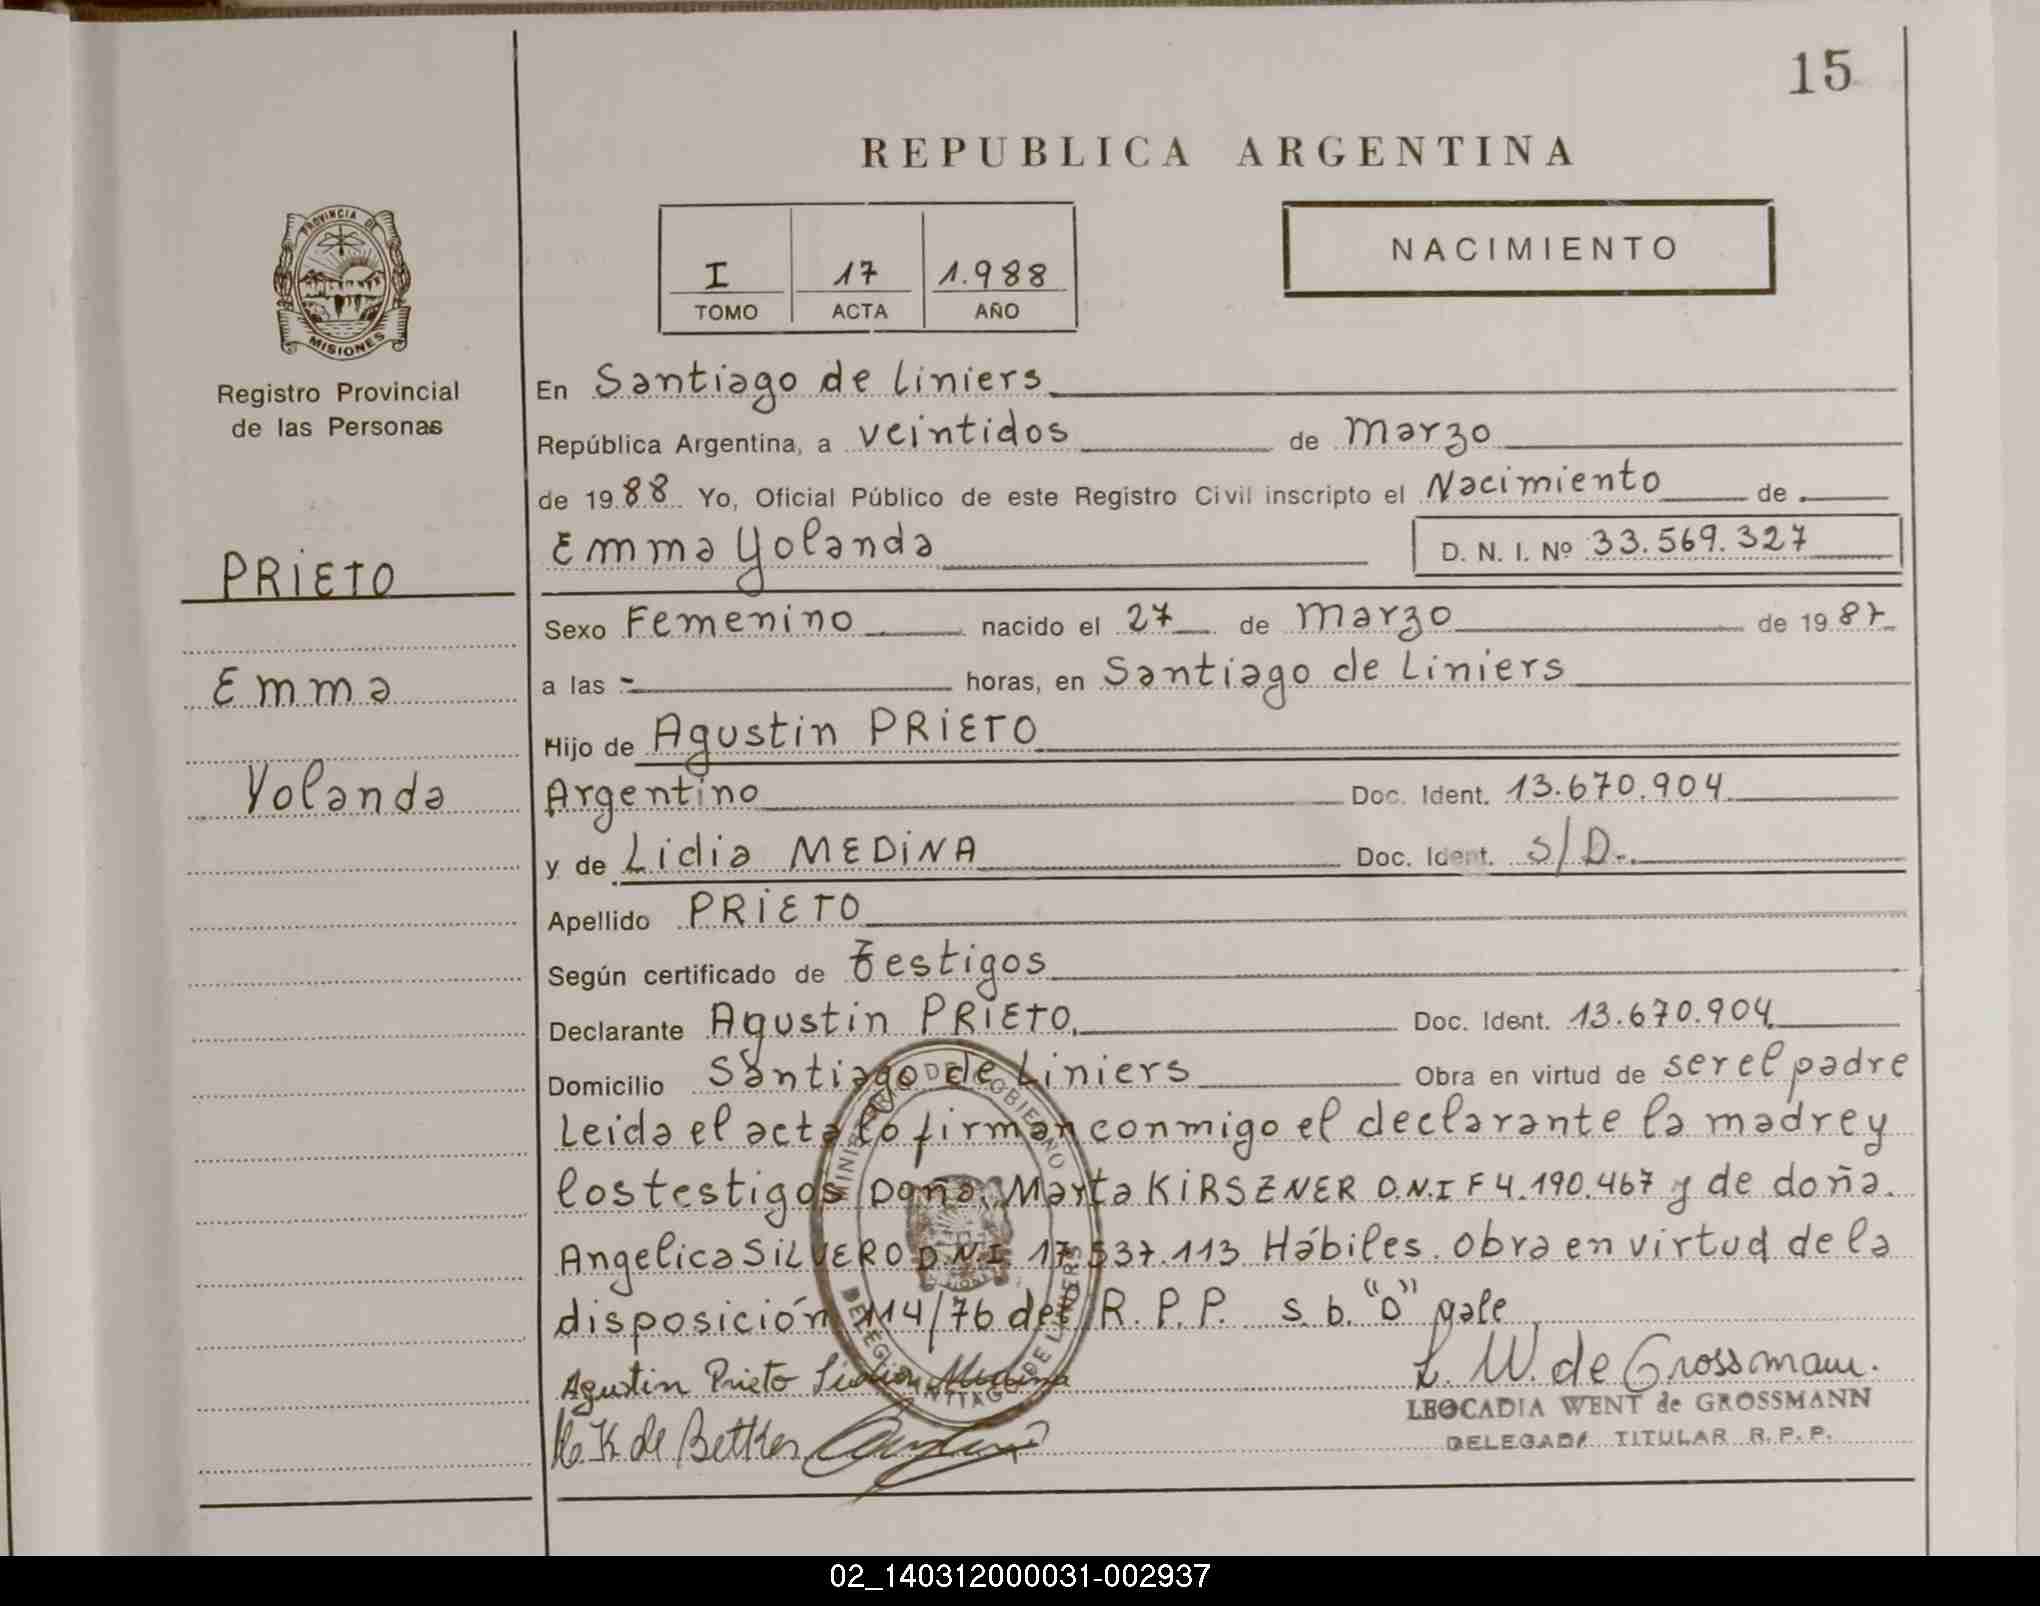 15
REPUBLICA ARGENTINA
PROVINCIA DE
MISIONES
Registro Provincial
de las Personas
PRIETO
Emma
Yolanda
I 17 1.988
TOMO ACTA AÑO
NACIMIENTO
En Santiago de Liniers
República Argentina, a veintidos de Marzo
de 1988 Yo, Oficial Público de este Registro Civil inscripto el Nacimiento de
Emma Yolanda D. N. I. Nº 33.569.327
Sexo Femenino nacido el 27 de Marzo de 1987
a las - horas, en Santiago de Liniers
Hijo de Agustin PRIETO
Argentino Doc. Ident. 13.670.904
y de Lidia MEDINA Doc. Ident. S/D.
Apellido PRIETO
Según certificado de Testigos
Declarante Agustin PRIETO. Doc. Ident. 13.670.904
Domicilio Santiago de Liniers Obra en virtud de ser el padre
Leida el acta lo firman conmigo el declarante la madre y
los testigos Doña. Marta KIRSZNER D.N.I F 4.190.467 y de doña.
Angelica SILVERO D.N.I 17.537.113 Hábiles. Obra en virtud de la
disposición 114/76 del R.P.P. s. b. "O" vale
Agustin Prieto Lidia Medina L. W. de Grossmann.
LEOCADIA WENT de GROSSMANN
M. K. de Bettker
DELEGADA TITULAR R. P. P.
MINISTERIO DE GOBIERNO
DELEGACION SANTIAGO DE LINIERS
02_140312000031-002937